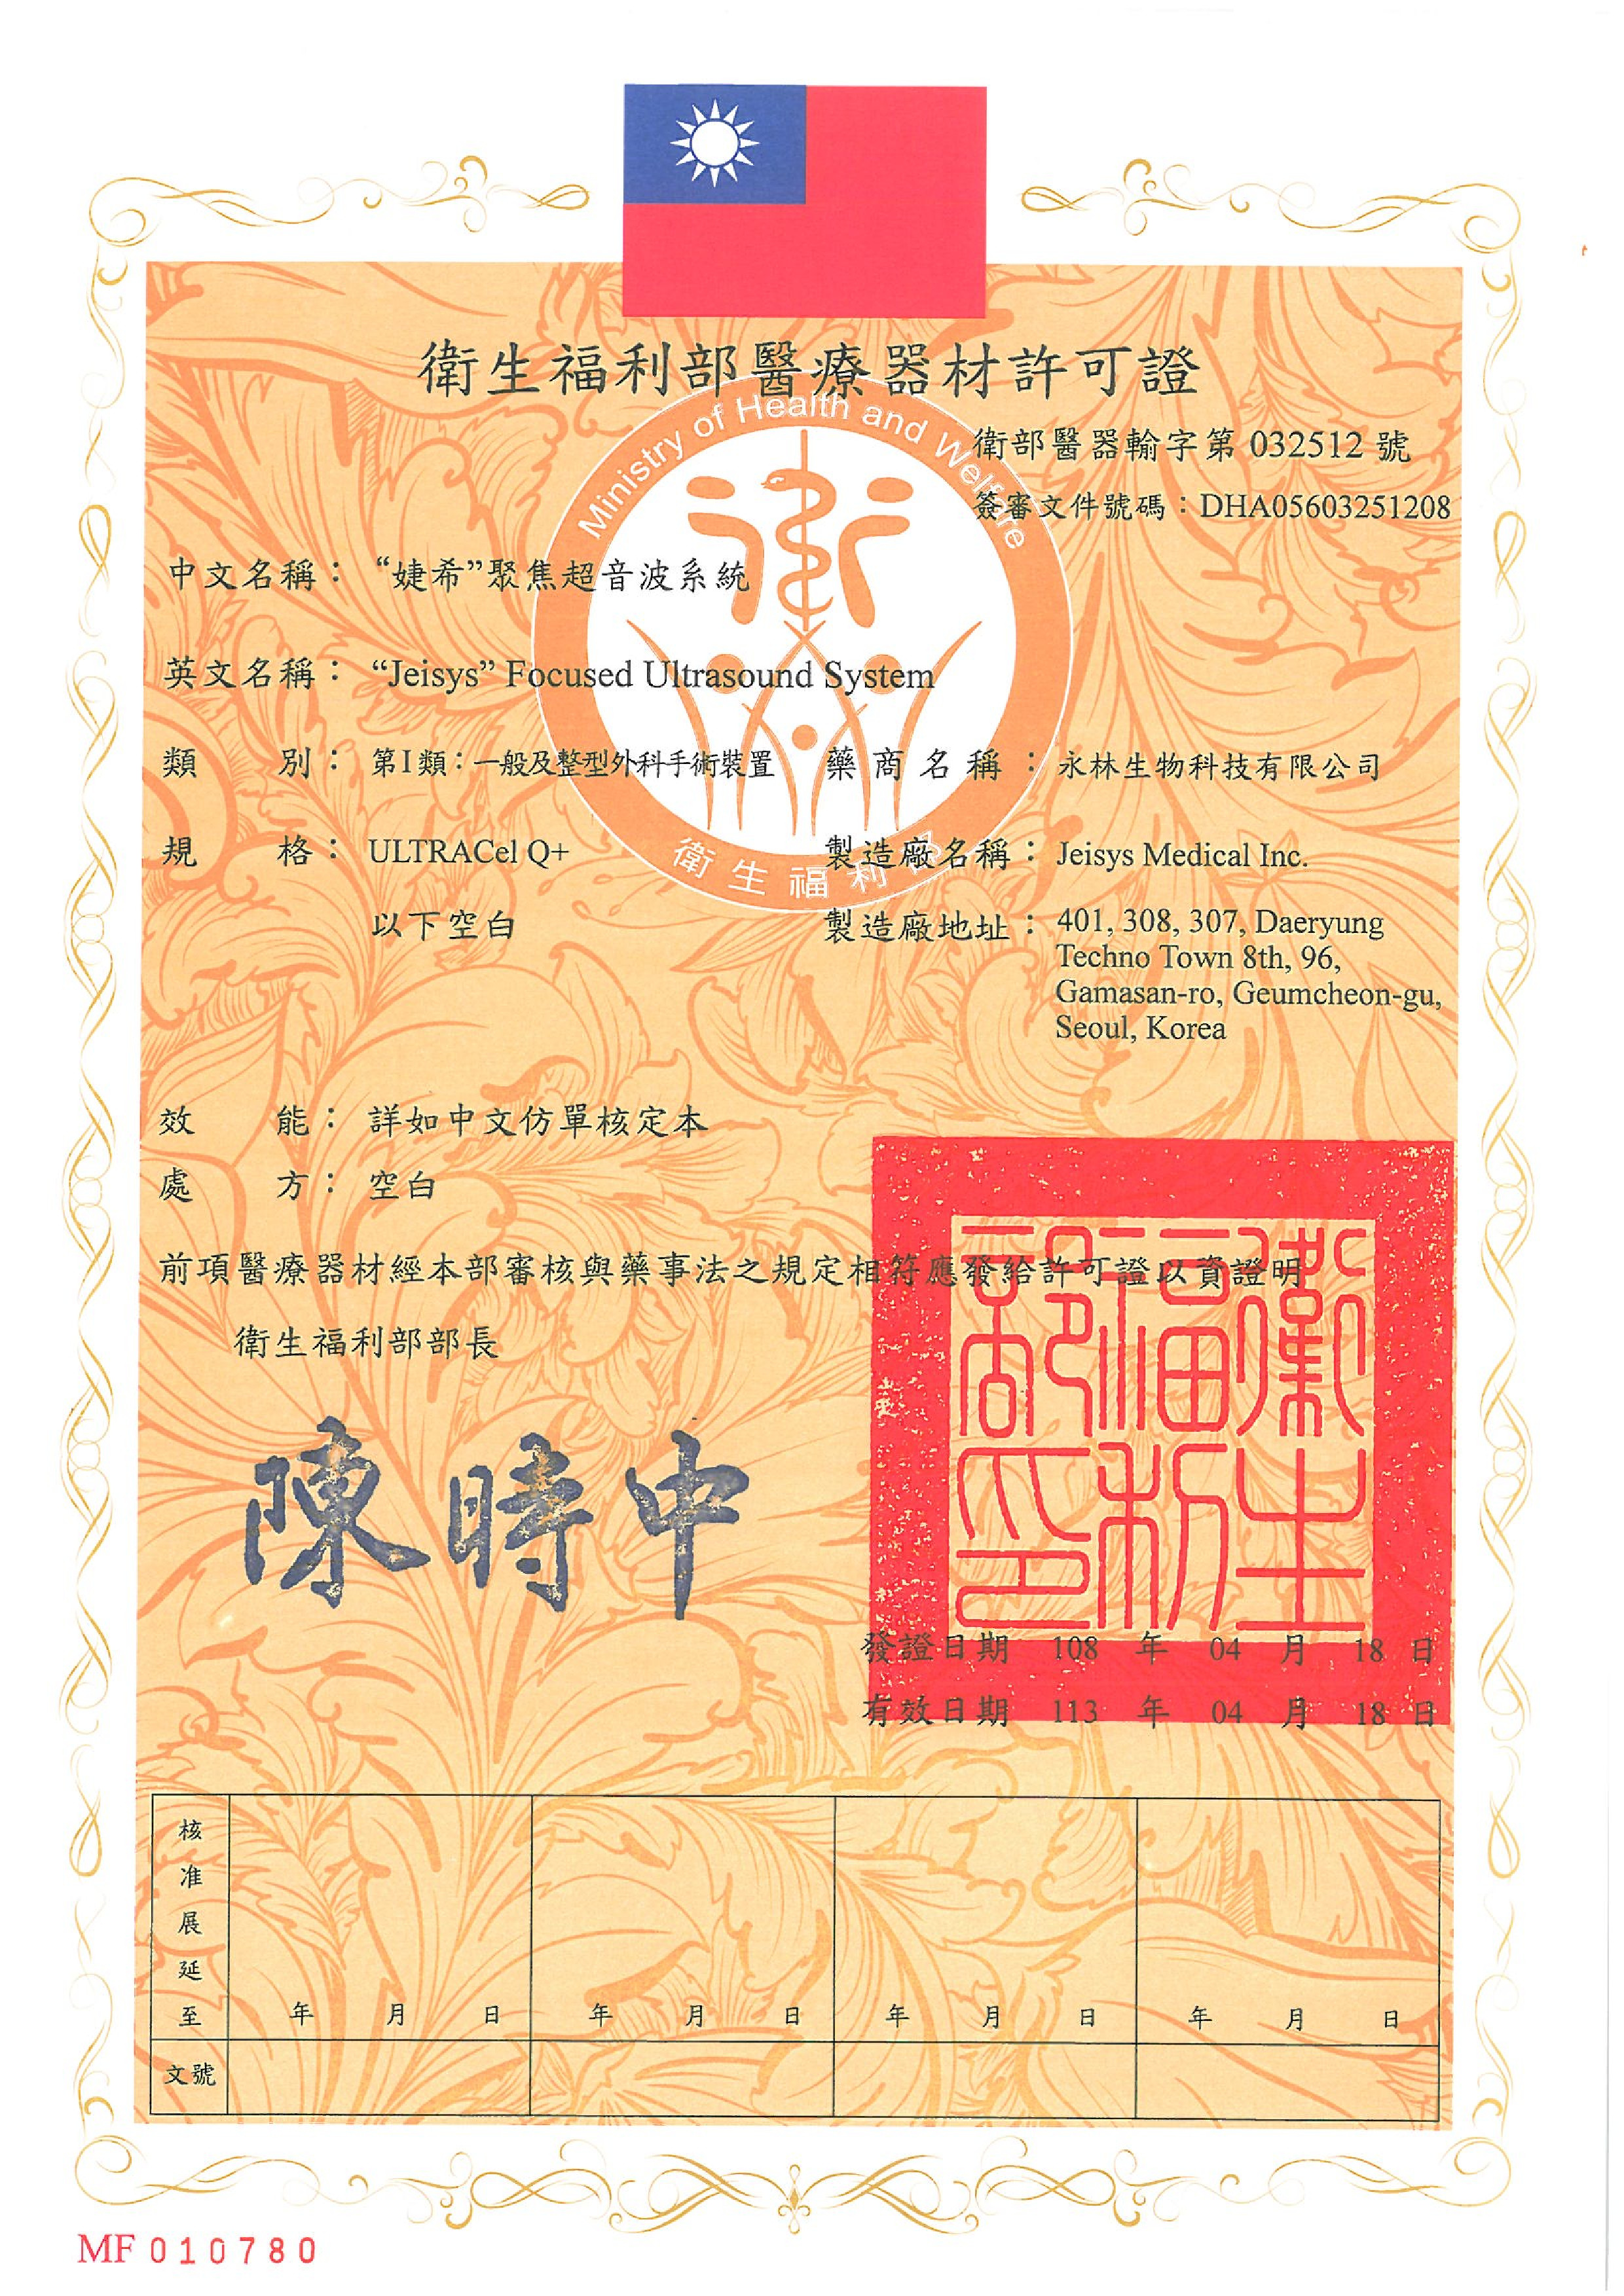 衛生福利部醫療器材許可證
Ministry of Health and Welfare
衛部醫器輸字第 032512 號
簽審文件號碼：DHA05603251208
中文名稱： “婕希”聚焦超音波系統
英文名稱： “Jeisys” Focused Ultrasound System
類 別： 第I類：一般及整型外科手術裝置 藥商名稱： 永林生物科技有限公司
規 格： ULTRACel Q+ 製造廠名稱： Jeisys Medical Inc.
衛生福利部
以下空白 製造廠地址： 401, 308, 307, Daeryung
Techno Town 8th, 96,
Gamasan-ro, Geumcheon-gu,
Seoul, Korea
效 能： 詳如中文仿單核定本
處 方： 空白
前項醫療器材經本部審核與藥事法之規定相符應發給許可證以資證明
衛生福利部部長
陳時中
衛生福利部印
發證日期 108 年 04 月 18 日
有效日期 113 年 04 月 18 日
核准展延至 年 月 日 年 月 日 年 月 日 年 月 日
文號
MF 010780